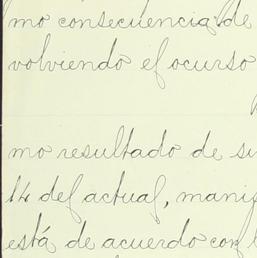 mo consecuencia de
volviendo el ocurso
mo resultado de su
14 del actual, manif
está de acuerdo con l